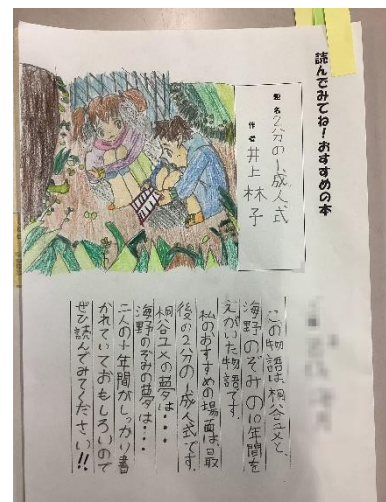 読んでみてね!おすすめの本
題名
2分の1成人式
作者
井上林子
この物語は、桐谷ユメと、
海野のぞみの10年間を
えがいた物語です。
私のおすすめの場面は、最
後の2分の1成人式です。
桐谷ユメの夢は・・・
海野のぞみの夢は・・・
二人の十年間がしっかり書
かれていておもしろいので
ぜひ読んでみてください!!